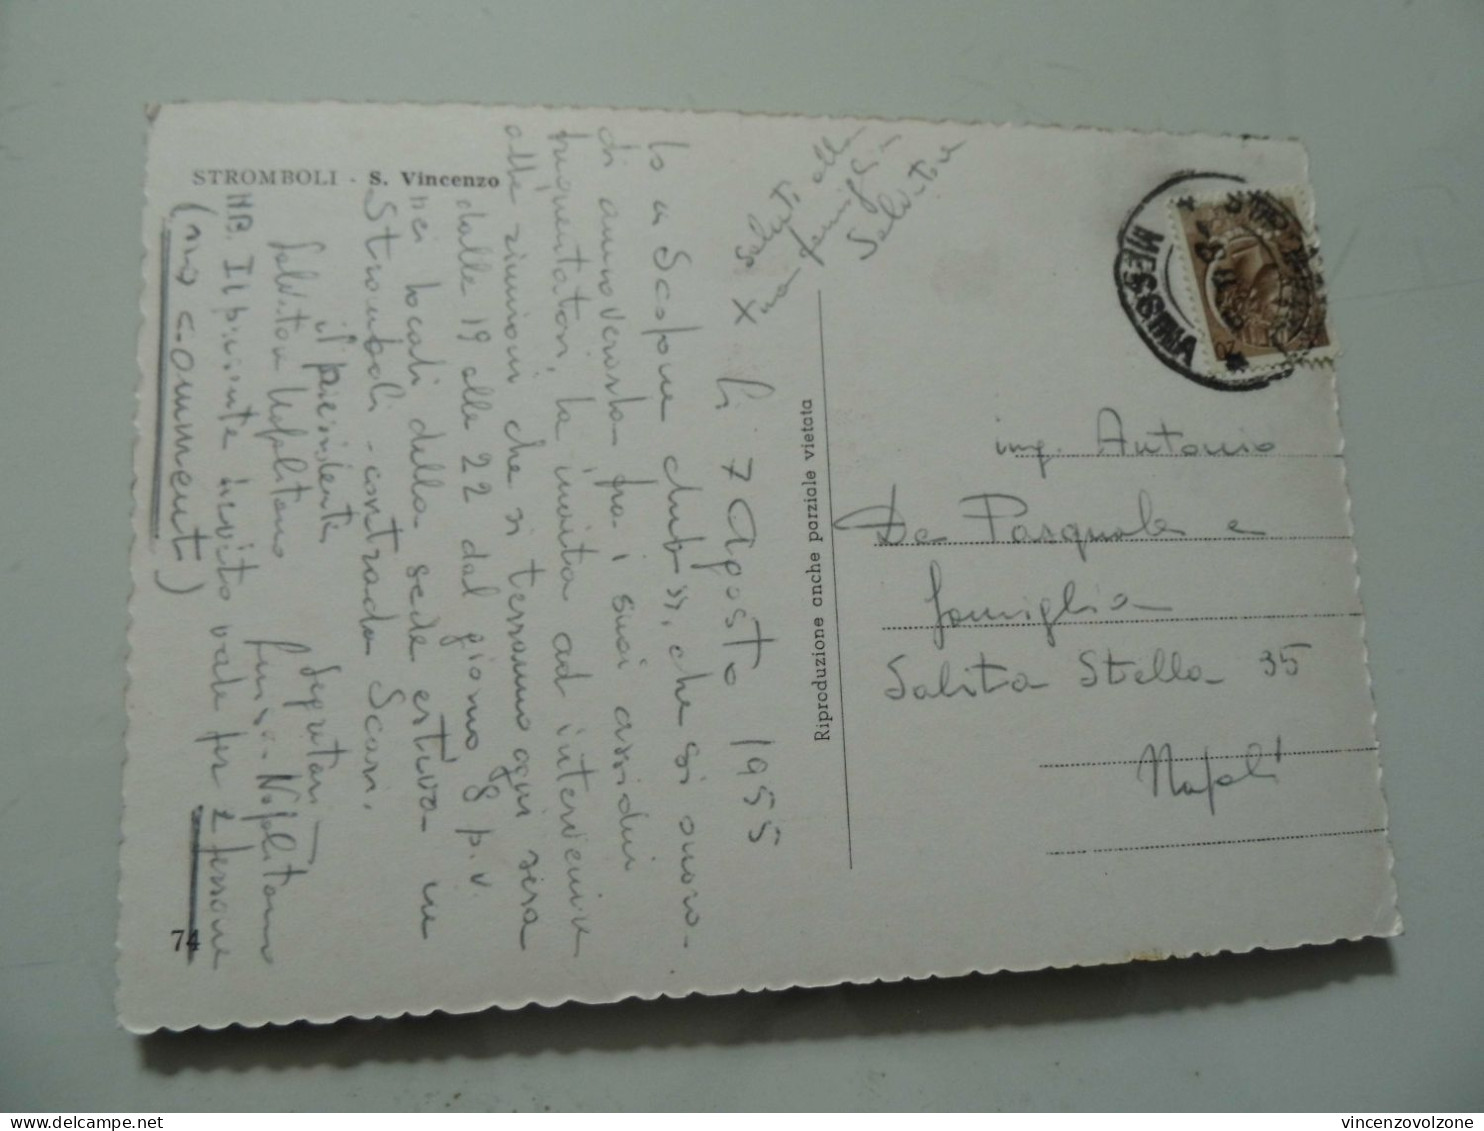 STROMBOLI - S. Vincenzo
Li 7 Agosto 1955
lo "Scopone club", che si onora
di annoverarla fra i suoi assidui
frequentatori, la invita ad intervenire
alle riunioni che si terranno ogni sera
dalle 19 alle 22 dal giorno 8 p.v.
nei locali della sede estiva in
Stromboli - contrada Scari.
il presidente
Segretari
Salvatore Napolitano
Napolitano
NB. Il presente invito vale per 2 persone
(no comment)
X Saluti alla
sua famiglia
Salvatore
74
Riproduzione anche parziale vietata
MESSINA
20
ing. Antonio
De Pasquale e
famiglia
Salita Stella 35
Napoli
vincenzovolzone